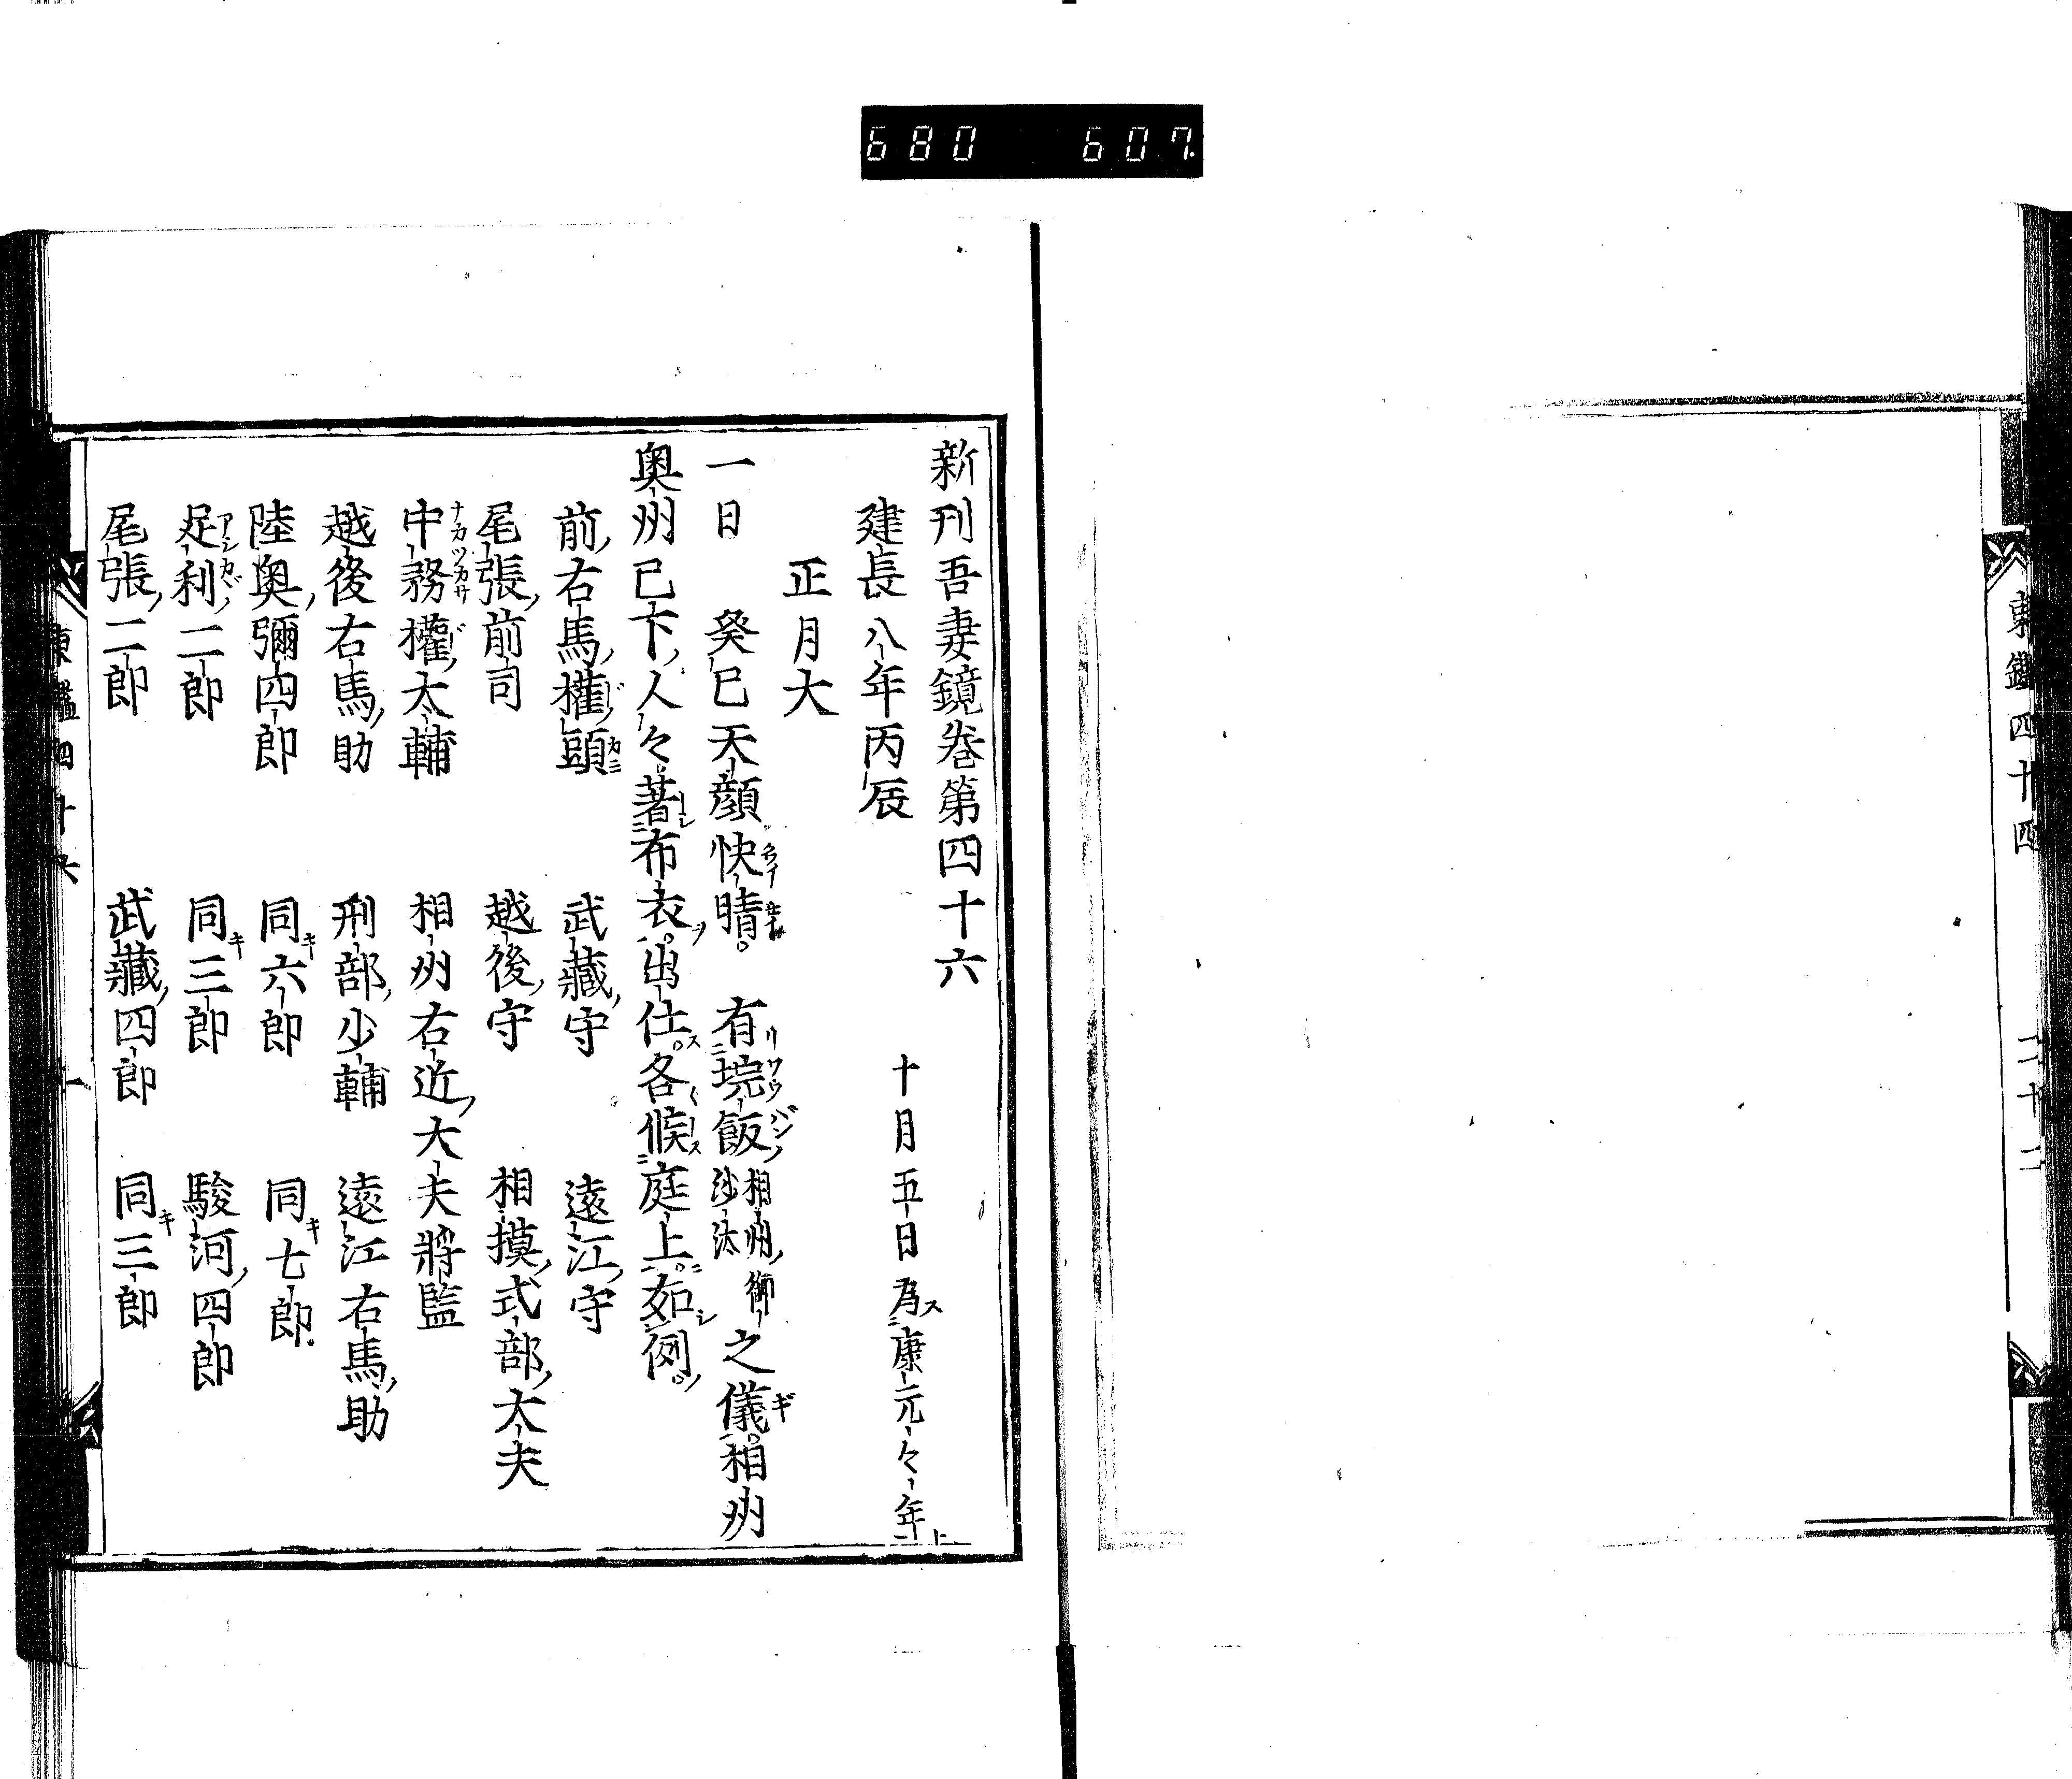 680 607
東鑑四十四 二十二
新刊吾妻鏡卷第四十六
建長八年丙辰 十月五日為康元々年
正月大
一日 癸巳天顔快晴。有垸飯相州御沙汰之儀。相州
奥州已下人々著布衣。出仕。各候庭上。如例。
前右馬權頭 武藏守 遠江守
尾張前司 越後守 相摸式部大夫
中務權大輔 相州右近大夫將監
越後右馬助 刑部少輔 遠江右馬助
陸奥彌四郎 同六郎 同七郎
足利二郎 同三郎 駿河四郎
尾張二郎 武藏四郎 同三郎
東鑑四十六 一